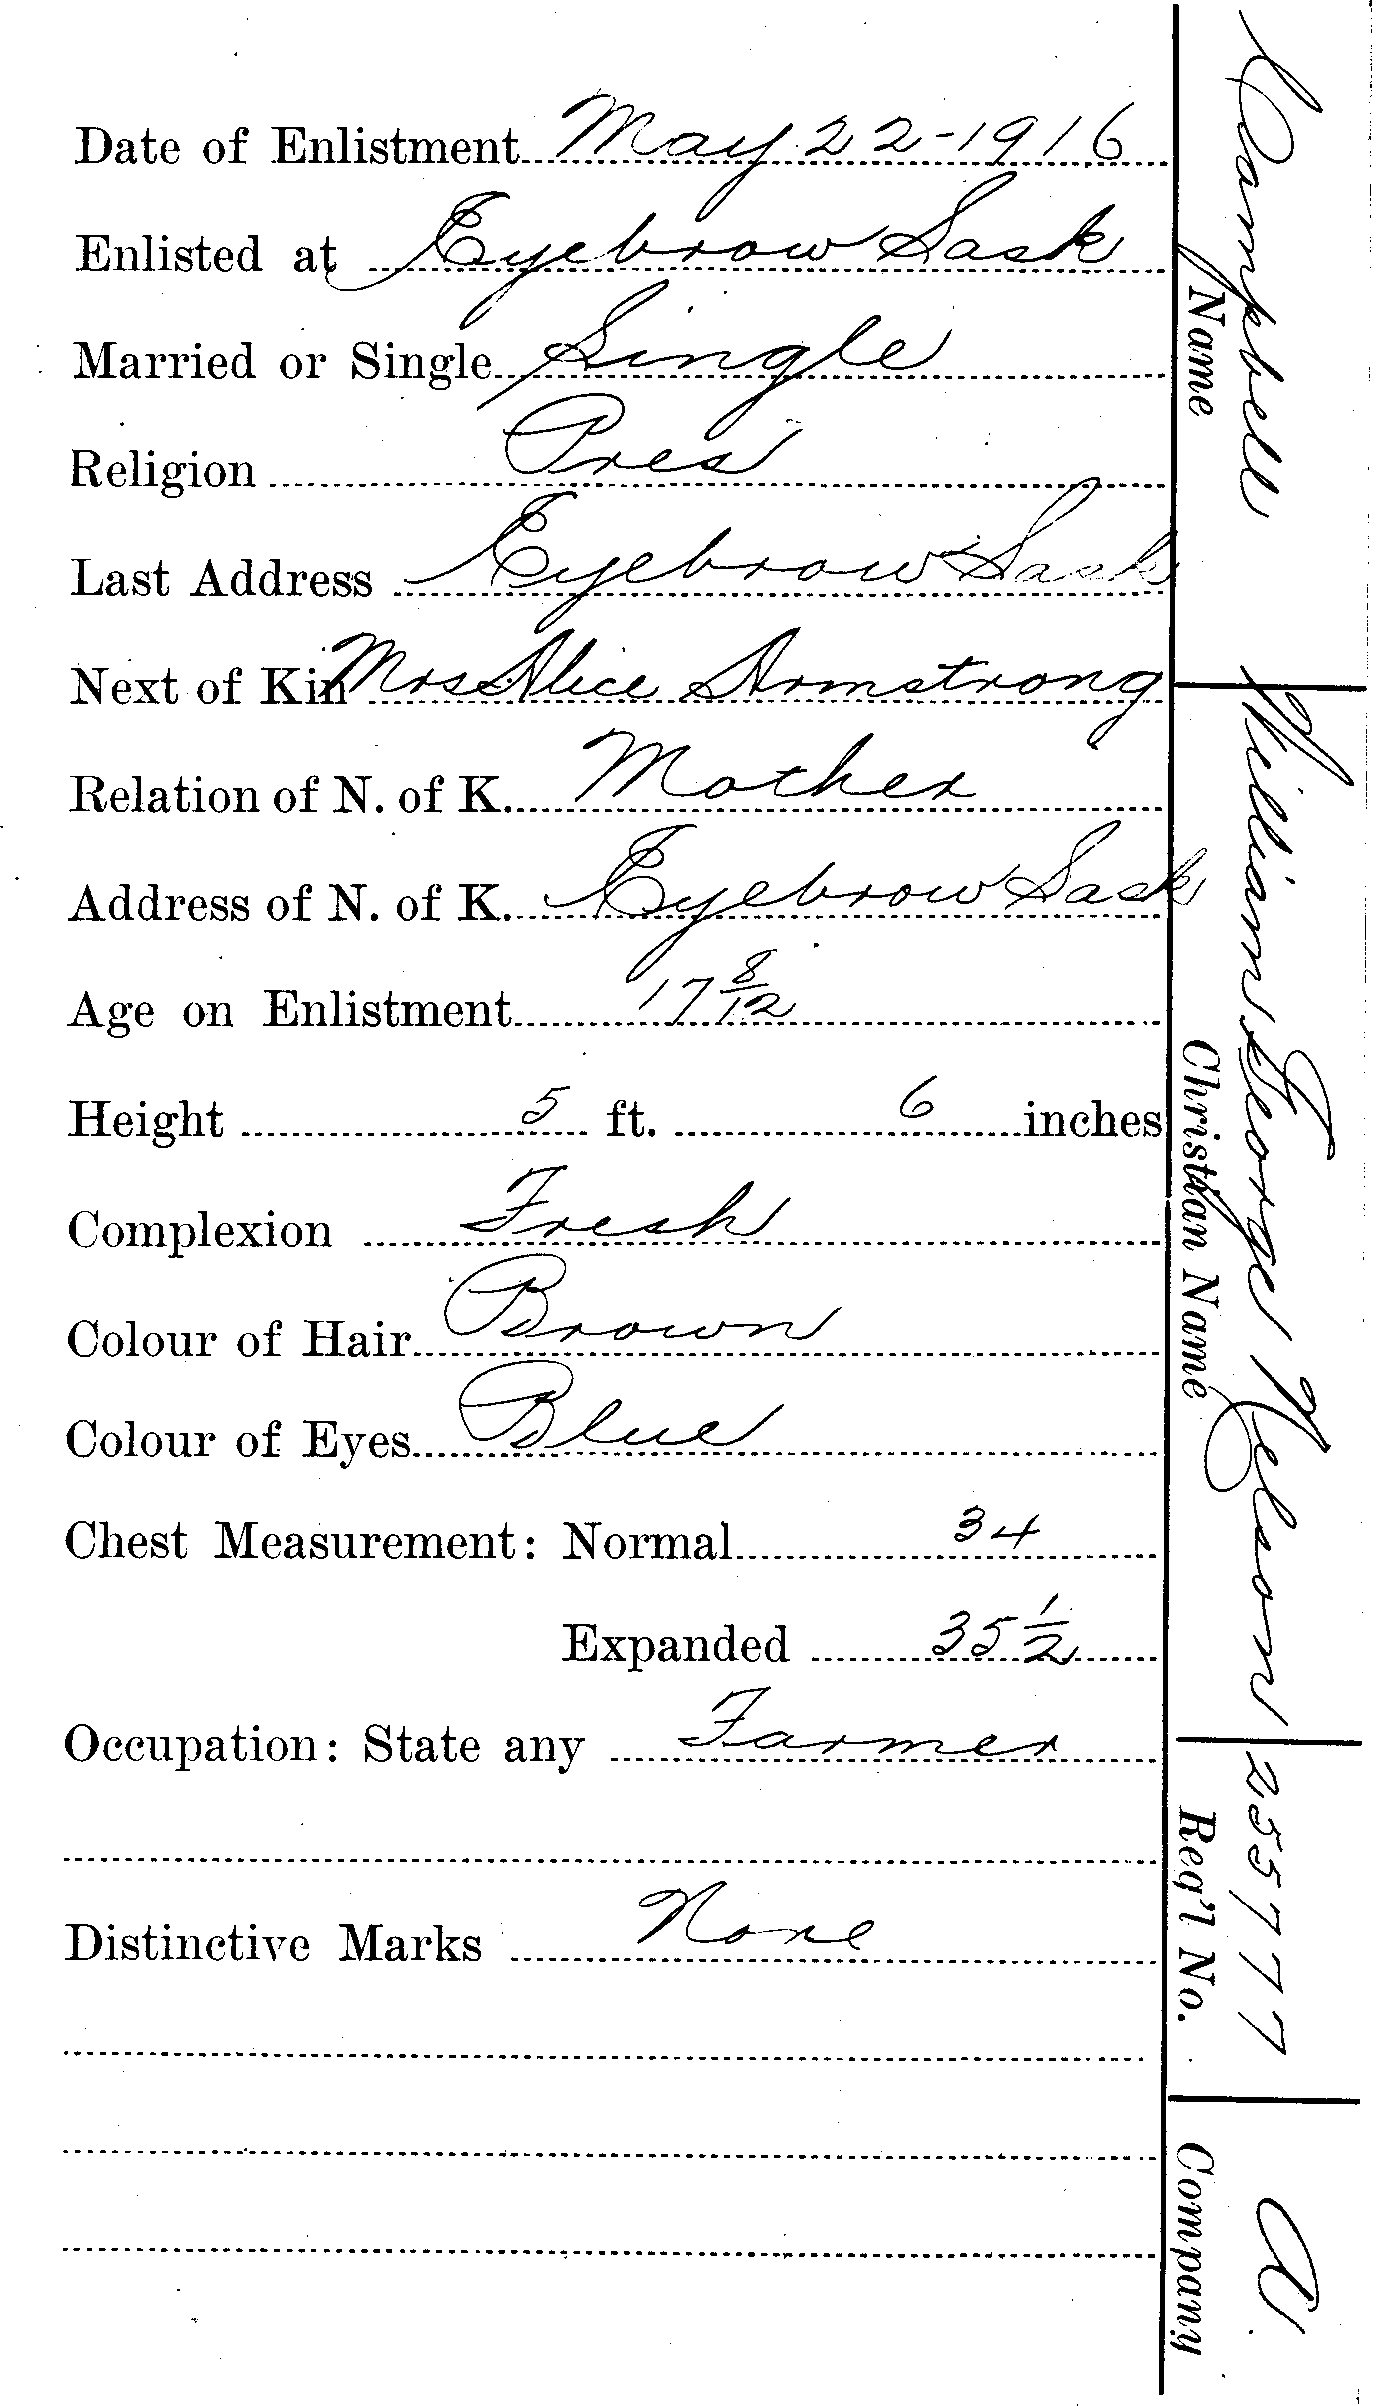 Date of Enlistment May 22-1916
Enlisted at Eyebrow Sask
Married or Single Single
Religion Pres
Last Address Eyebrow Sask
Next of Kin Mrs Alice Armstrong
Relation of N. of K. Mother
Address of N. of K. Eyebrow Sask
Age on Enlistment 17 8/12
Height 5 ft. 6 inches
Complexion Fresh
Colour of Hair Brown
Colour of Eyes Blue
Chest Measurement: Normal 34
Expanded 35 1/2
Occupation: State any Farmer
Distinctive Marks None
Campbell William George Nelson 255777 A
Name Christian Name Reg'l No. Company